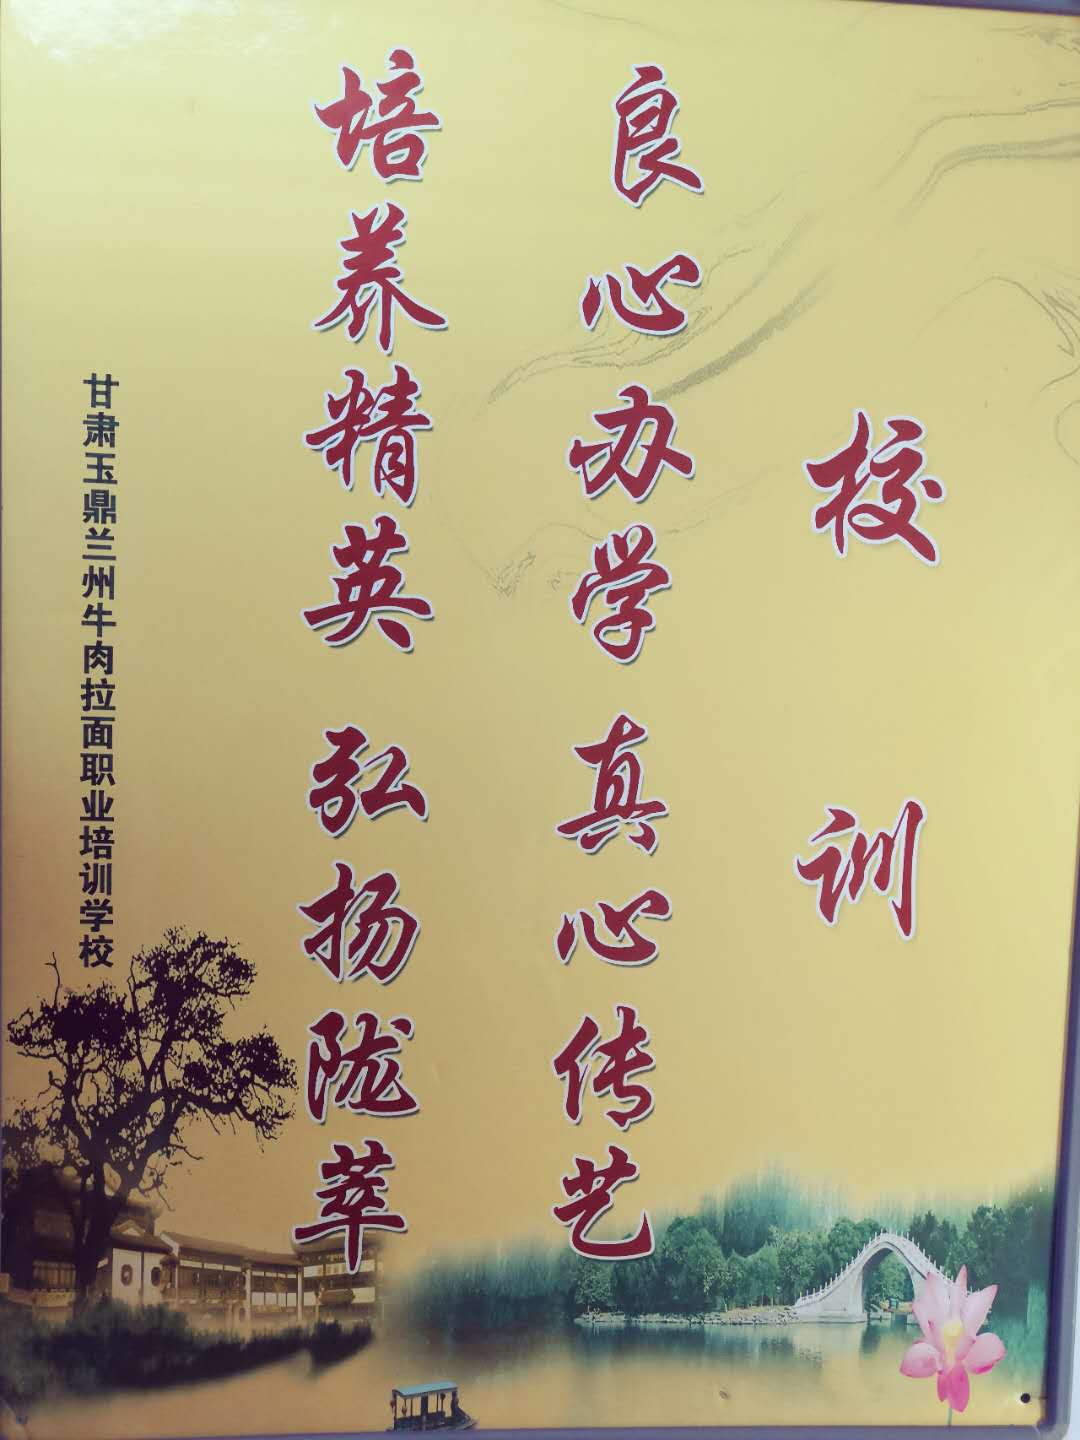 校训
良心办学 真心传艺
培养精英 弘扬陇萃
甘肃玉鼎兰州牛肉拉面职业培训学校